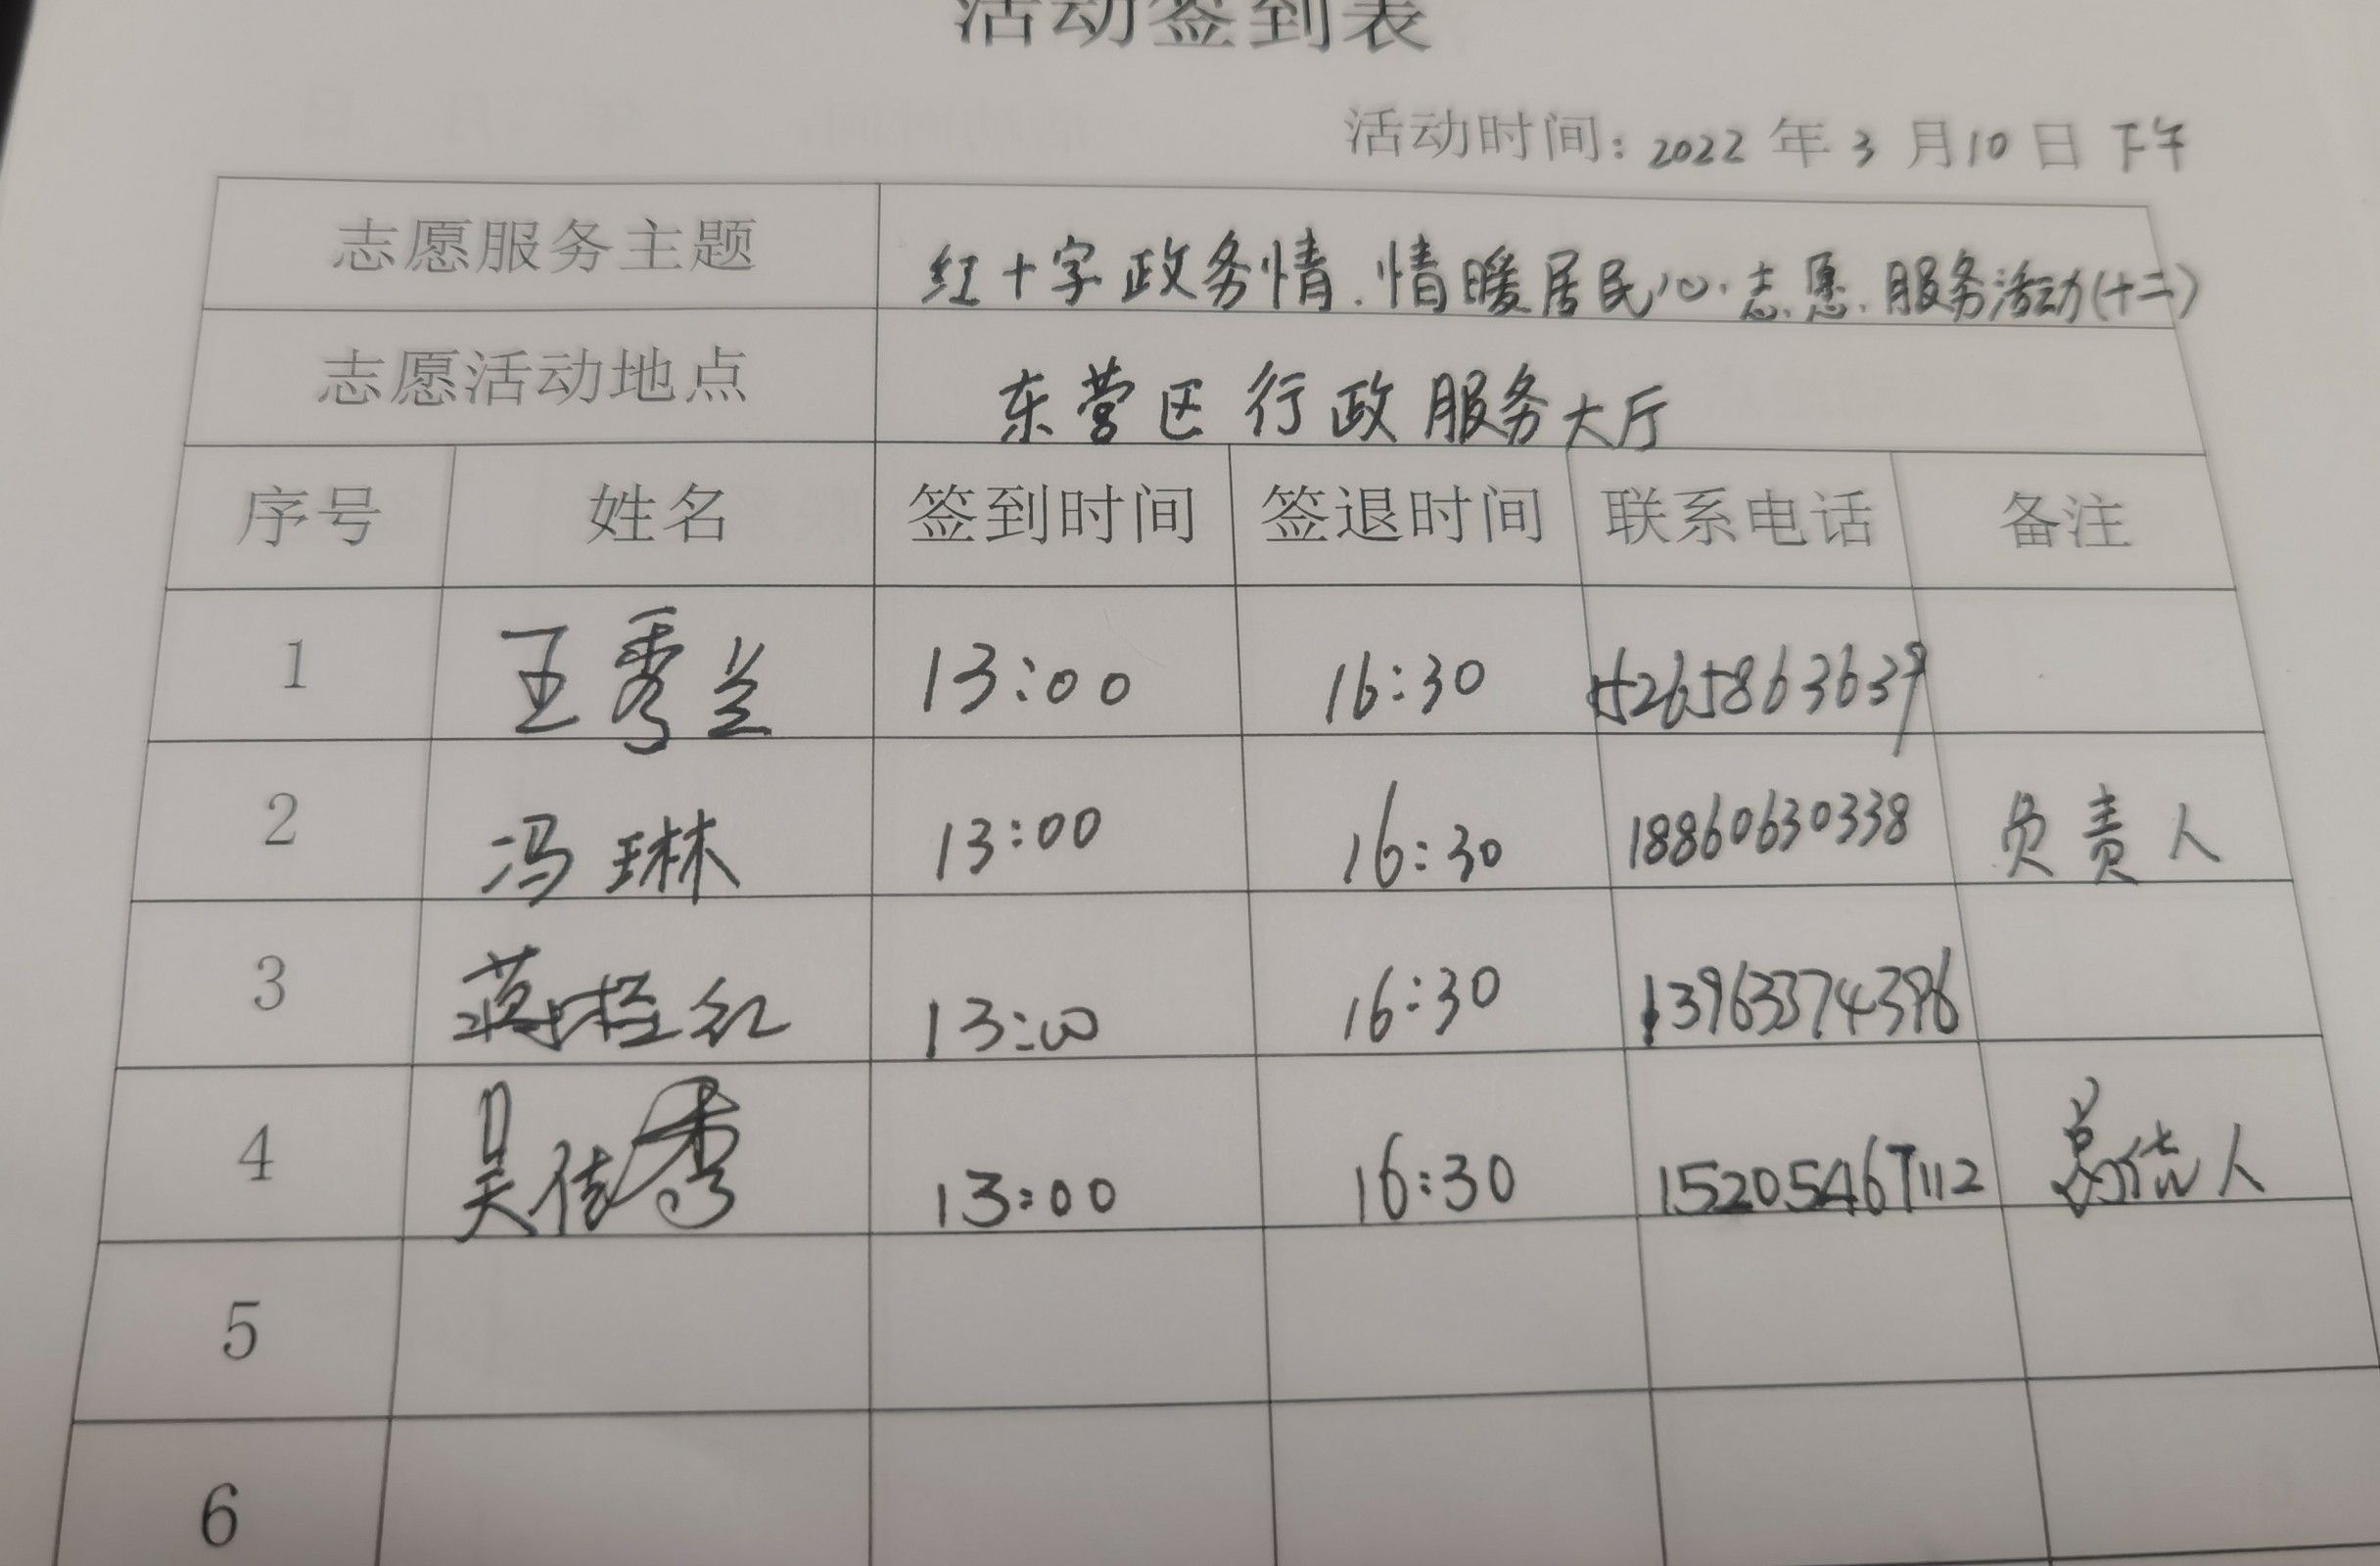 活动签到表
活动时间：2022年3月10日下午
志愿服务主题 红十字政务情.情暖居民心.志愿服务活动(十二)
志愿活动地点 东营区行政服务大厅
序号 姓名 签到时间 签退时间 联系电话 备注
1 王秀兰 13:00 16:30 15265863639
2 冯琳 13:00 16:30 18860630338 负责人
3 红 13:00 16:30 13963374396
4 吴佳秀 13:00 16:30 15205467112 人
5
6